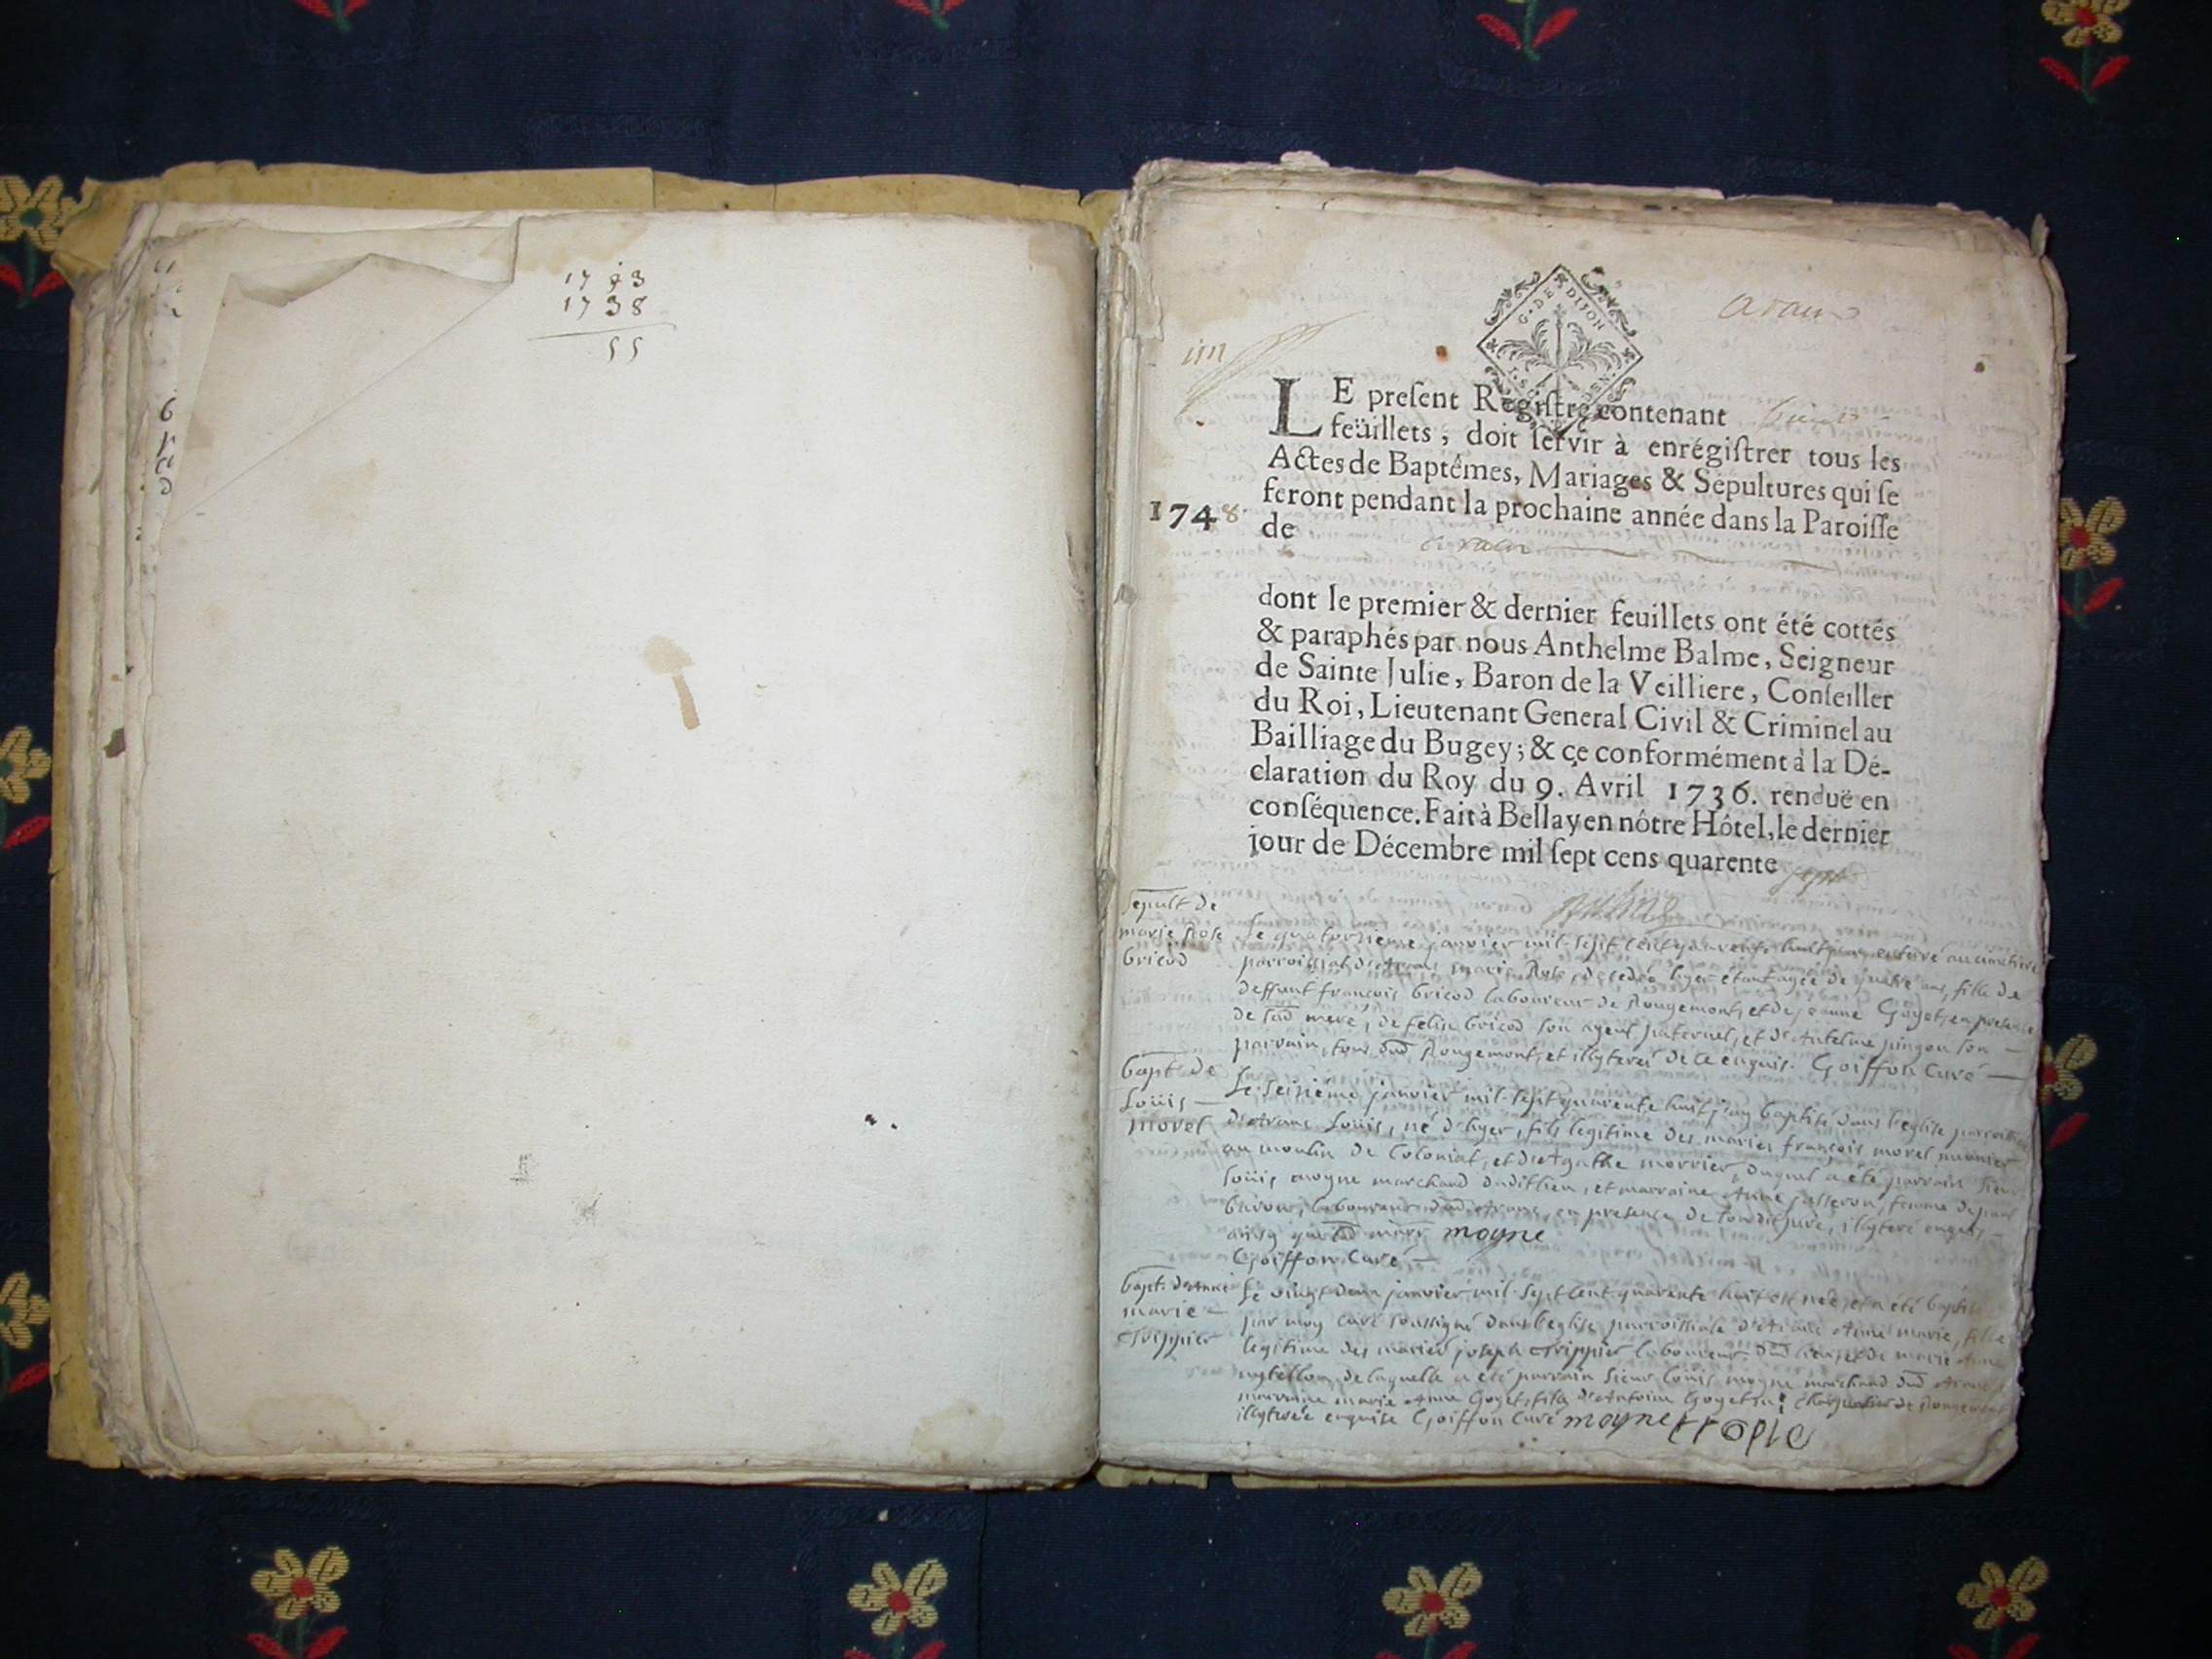 1793
1738
55
G. DE DIJON
aran
LE preſent Régiſtre contenant
feüillets, doit ſervir à enrégiſtrer tous les
Actes de Baptêmes, Mariages & Sépultures qui ſe
feront pendant la prochaine année dans la Paroiſſe
1748
de aran
dont le premier & dernier feuillets ont été cottés
& paraphés par nous Anthelme Balme, Seigneur
de Sainte Julie, Baron de la Veilliere, Conſeiller
du Roi, Lieutenant General Civil & Criminel au
Bailliage du Bugey; & ce conformément à la Dé-
claration du Roy du 9. Avril 1736. renduë en
conſéquence. Fait à Bellay en nôtre Hôtel, le dernier
jour de Décembre mil ſept cens quarente sept
Balme
sepult de
marie Rose
bricod
Le quatorzieme janvier mil sept cent quarente huit enterré au cimetiere
parroissial d'Arane marie Rose decedée hyer etant agée de quatre ans, fille de
deffunt françois bricod laboureur de Rougemont, et de jeanne Goyet, en presence
de lad mere, de felix bricod son ayeul paternel, et d'Antelme pingon son
parrain, tous dud Rougemont, et illyterés de ce enquis. Goiffon Curé
bapt. de
Loüis
morel
Le seizième janvier mil sept quarente huit j'ay baptisé dans l'eglise parroissiale
d'Arane Loüis, né d'hyer, fils legitime des mariés françois morel munier
au moulin de Coloniat, et d'Agathe morrier, duquel a été parrain sieur
Loüis moyne marchand dudit lieu, et marraine Anne passeron, femme de paul
laboureur dud Arane, en presence de illyteré enquis
ainsy que lad marr moyne
Goiffon Curé
bapt. d'Anne
marie
Grippier
Le vingt deux janvier mil sept cent quarente huit est née, et a été baptisée
par moy curé soussigné dans l'eglise parroissiale d'Arane Anne marie, fille
legitime des mariés joseph Grippier laboureur dud lieu, et de marie Anne
de laquelle a été parrain sieur Loüis moyne marchand dud Arane
marraine marie Anne Goyet, fille d'Antoine Goyet de Rougemont
illyterée enquise Goiffon Curé moyne